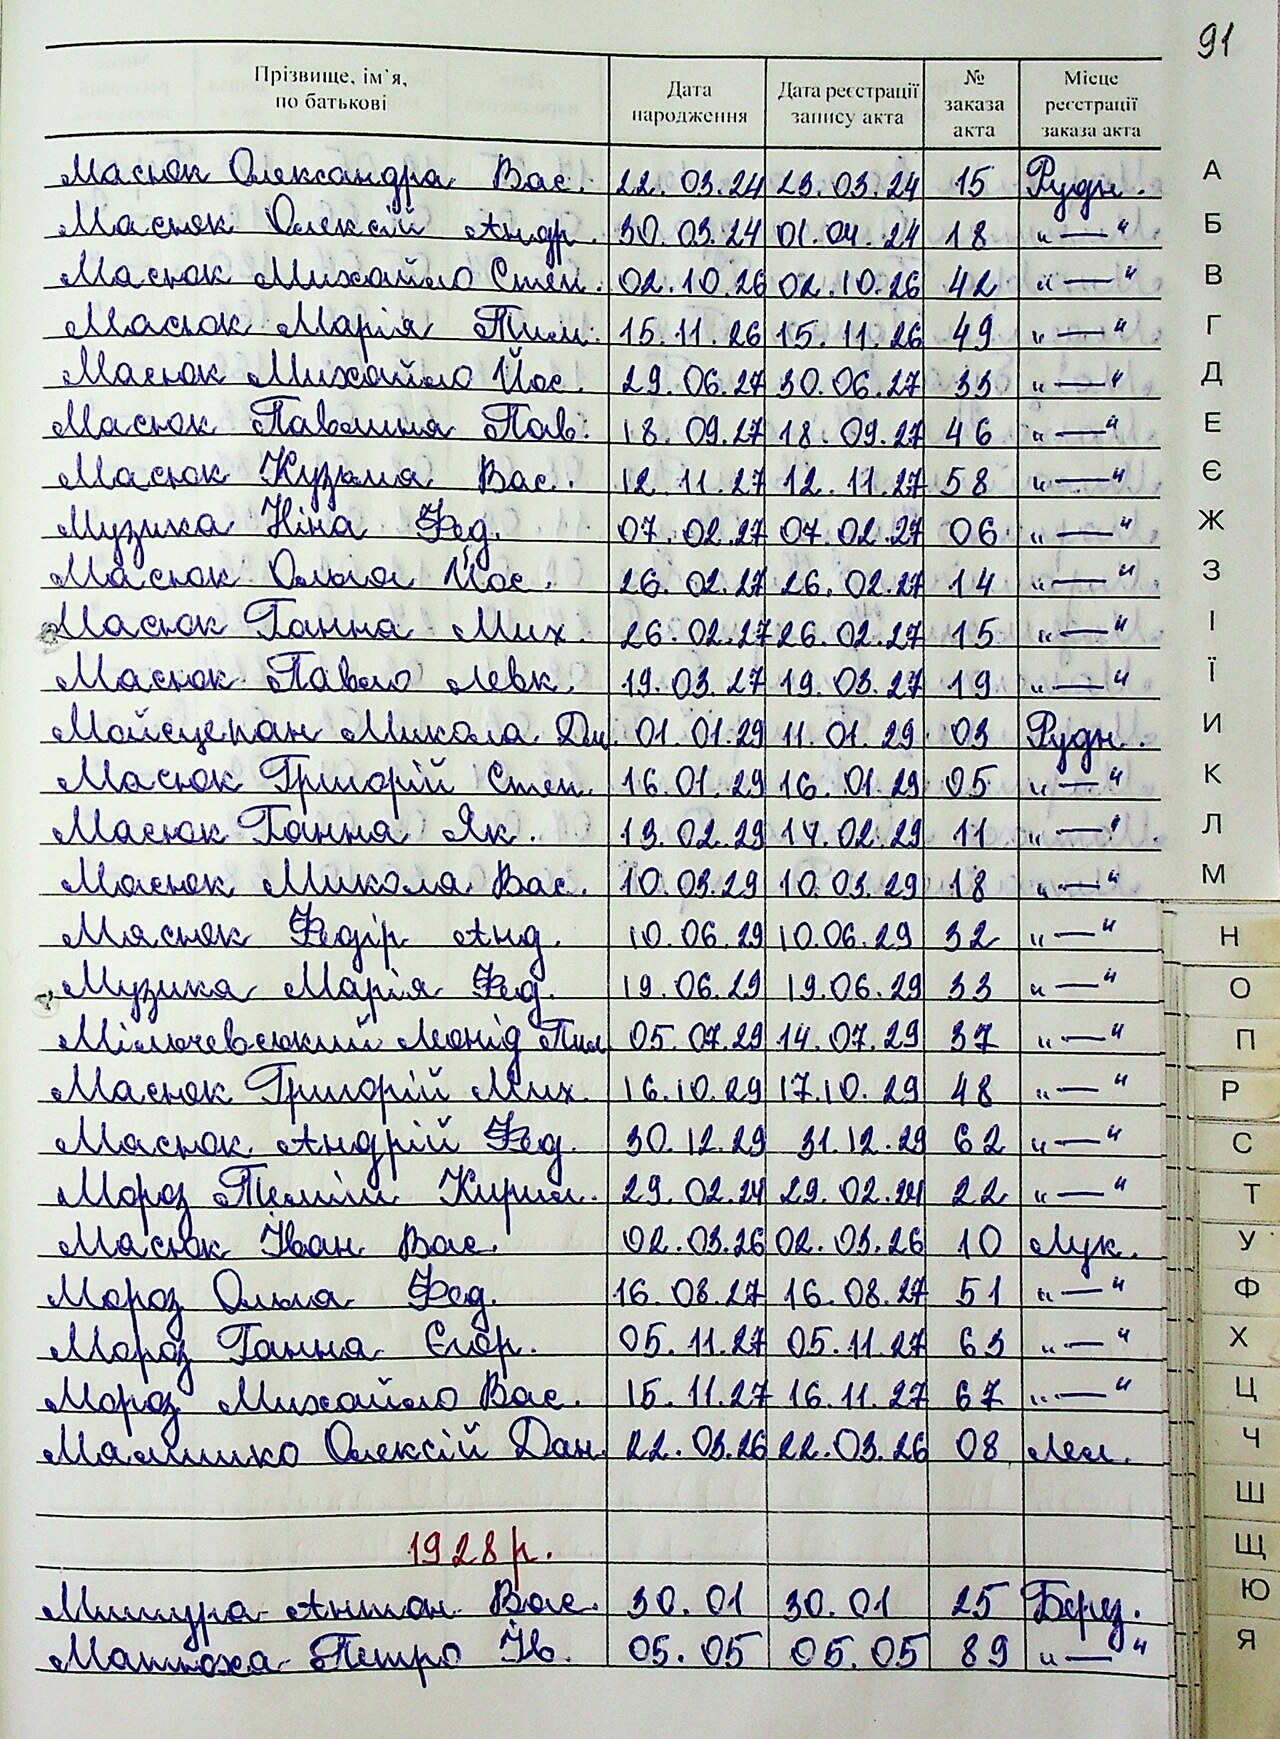 91
Прізвище, ім'я, по батькові | Дата народження | Дата реєстрації запису акта | № заказа акта | Місце реєстрації заказа акта
Масюк Олександра Вас. 22.03.24 23.03.24 15 Рудн.
Масюк Олексій Андр. 30.03.24 01.04.24 18 "—"
Масюк Михайло Степ. 02.10.26 02.10.26 42 "—"
Масюк Марія Тим. 15.11.26 15.11.26 49 "—"
Масюк Михайло Йос. 29.06.27 30.06.27 33 "—"
Масюк Павлина Пав. 18.09.27 18.09.27 46 "—"
Масюк Кузьма Вас. 12.11.27 12.11.27 58 "—"
Музика Ніна Фед. 07.02.27 07.02.27 06 "—"
Масюк Ольга Йос. 26.02.27 26.02.27 14 "—"
Масюк Ганна Мих. 26.02.27 26.02.27 15 "—"
Масюк Павло Левк. 19.03.27 19.03.27 19 "—"
Мойсеєнко Микола 01.01.29 11.01.29 03 Рудн.
Масюк Григорій Степ. 16.01.29 16.01.29 05 "—"
Масюк Ганна Як. 13.02.29 14.02.29 11 "—"
Масюк Микола Вас. 10.03.29 10.03.29 18 "—"
Масюк Федір Анд. 10.06.29 10.06.29 32 "—"
Музика Марія Фед. 19.06.29 19.06.29 33 "—"
Леонід Пил 05.07.29 14.07.29 37 "—"
Масюк Григорій Мих. 16.10.29 17.10.29 48 "—"
Масюк Андрій Фед. 30.12.29 31.12.29 62 "—"
Мороз Кирил. 29.02.24 29.02.24 22 "—"
Масюк Іван Вас. 02.03.26 02.03.26 10 Лук.
Мороз Ольга Фед. 16.08.27 16.08.27 51 "—"
Мороз Ганна Єгор. 05.11.27 05.11.27 63 "—"
Мороз Михайло Вас. 15.11.27 16.11.27 67 "—"
Малишко Олексій Дан. 22.03.26 22.03.26 08 Лел.
1928 р.
Мишура Антон Вас. 30.01 30.01 25 Берез.
Матюха Петро Ів. 05.05 05.05 89 "—"
А
Б
В
Г
Д
Е
Є
Ж
З
І
Ї
И
К
Л
М
Н
О
П
Р
С
Т
У
Ф
Х
Ц
Ч
Ш
Щ
Ю
Я